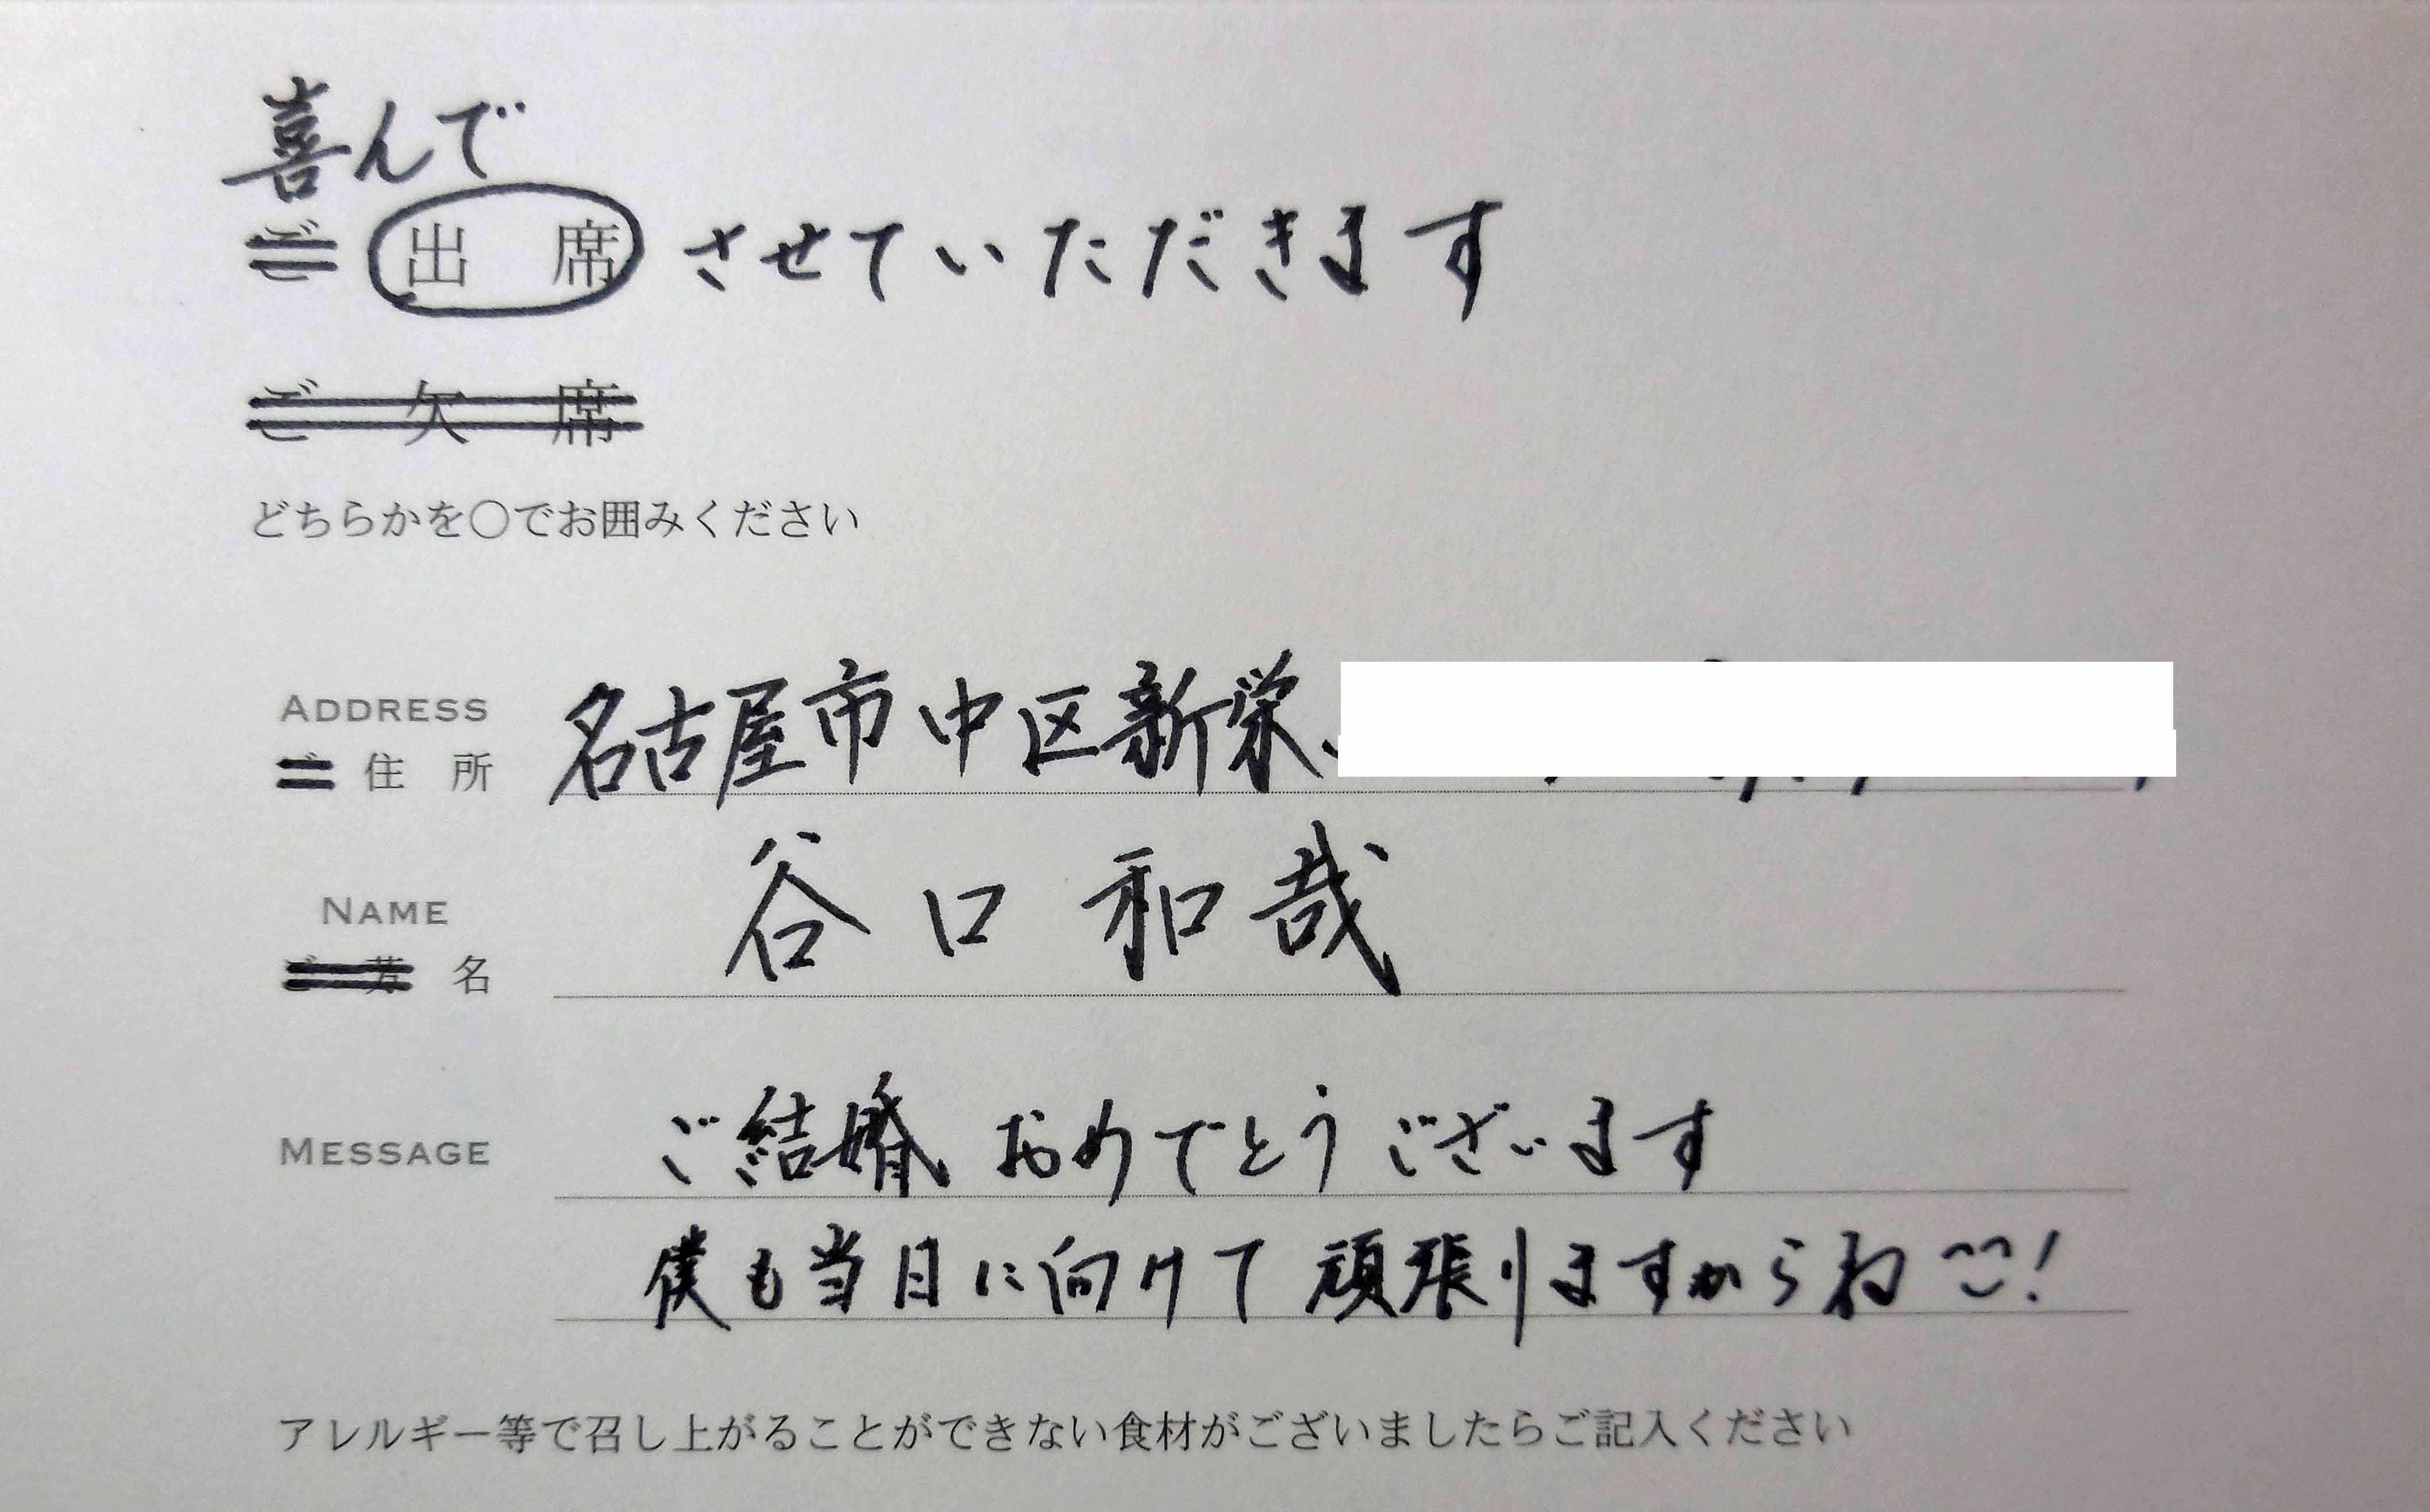 喜んで
ご 出 席 させていただきます
ご 欠 席
どちらかを〇でお囲みください
ADDRESS
ご 住 所 名古屋市中区新栄
NAME
ご 芳 名 谷口和哉
MESSAGE ご結婚おめでとうございます
僕も当日に向けて頑張りますからね ^^!
アレルギー等で召し上がることができない食材がございましたらご記入ください